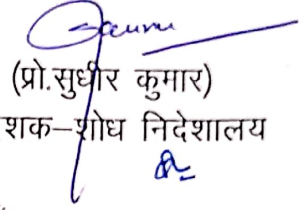 (प्रो.सुधीर कुमार)
शक–शोध निदेशालय